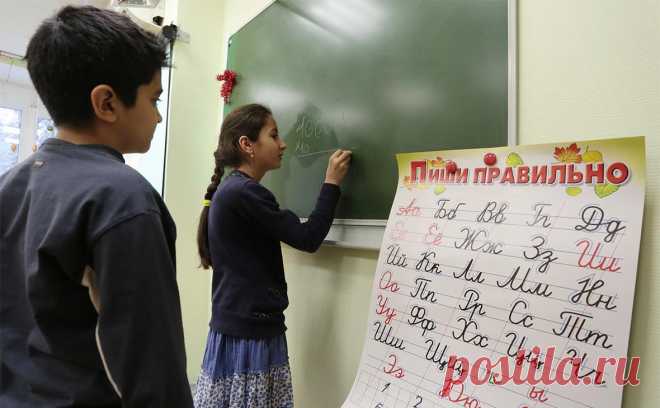 100
Пиши правильно
Аа Бб Вв Гг Дд
Ее Ёё Жж Зз Ии
Йй Кк Лл Мм Нн
Оо Пп Рр Сс Тт
Уу Фф Хх Цц Чч
Шш Щщ
Ээ Юю
postila.ru